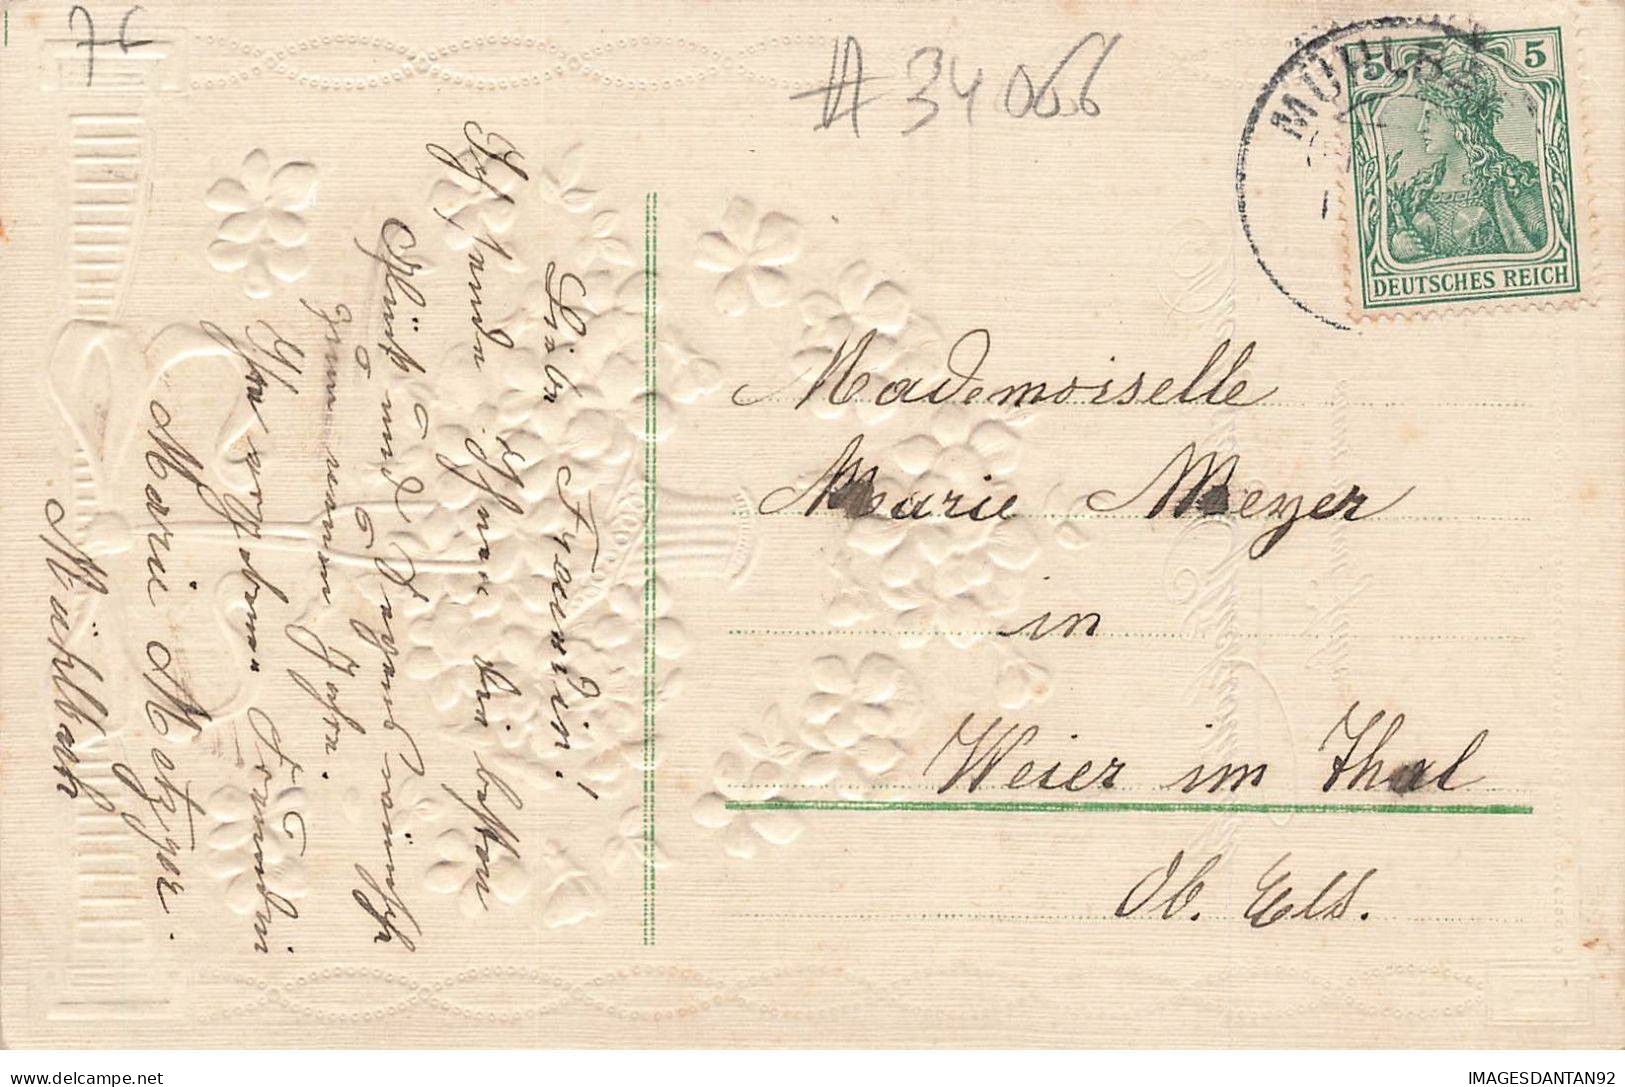 76
# 34066
MÜHLBA
5 5
DEUTSCHES REICH
Mademoiselle
Marie Meyer
in
Weier im Thal
Ob. Els.
Liebe Freundin!
Ich sende Ihnen die besten
Glück und Segenswünsche
zum neuen Jahre.
Ihre ergebene Freundin
Marie Metzger.
Mühlbach
IMAGESDANTAN92